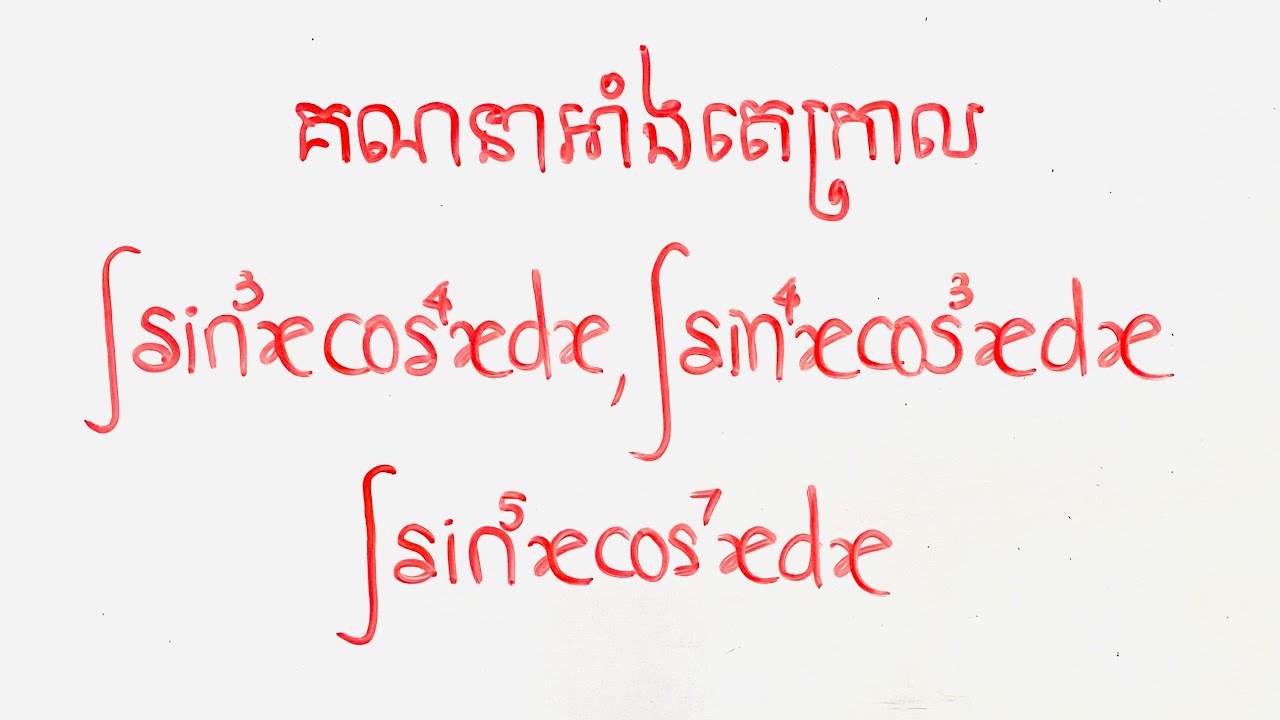 គណនាអាំងតេក្រាល
∫sin³xcos⁴xdx, ∫sin⁴xcos³xdx
∫sin⁵xcos⁷xdx